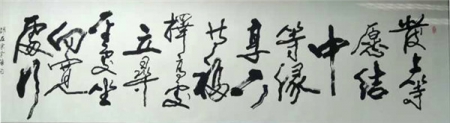 发上等
愿结
中
等缘
享下
等福
择高处
立寻
平处坐
向宽
处行